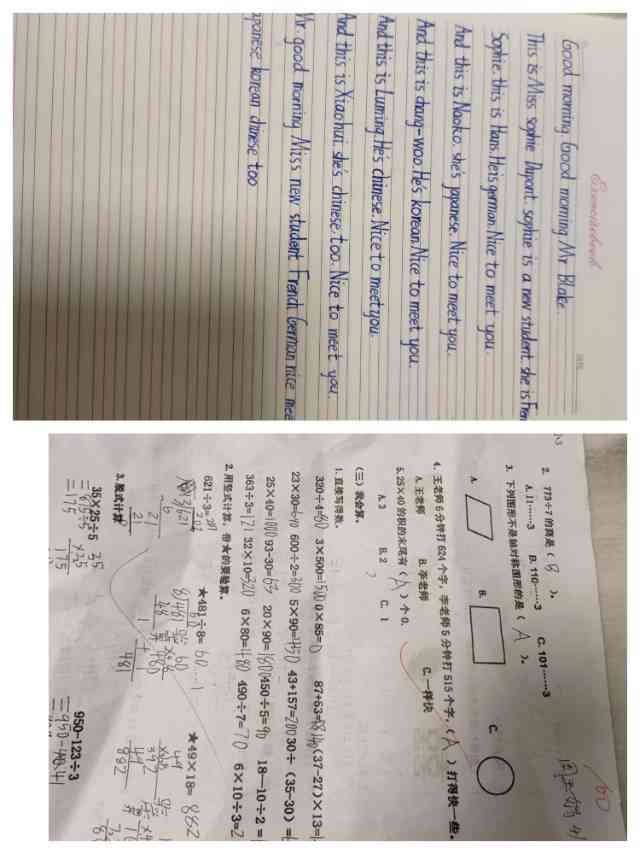 Good morning. Good morning Mr Blake.
This is Miss sophie Dupont. sophie is a new student. she is Fren
Sophie. this is Hans. He is german. Nice to meet you.
And this is Naoko. she's japanese. Nice to meet you.
And this is chang-woo. He's korean. Nice to meet you.
And this is Luming. He's chinese. Nice to meet you.
And this is Xiaohui. she's chinese. too. Nice to meet you.
Mr. good morning Miss new student French German nice mee
apanese korean chinese too
2. 773÷7 的商是（ B ）。
A. 11……3 B. 110……3 C. 101……3
3. 下列图形不是轴对称图形的是（ A ）。
A. B. C.
4. 王老师6分钟打624个字，李老师5分钟打515个字，（ A ）打得快一些。
A. 王老师 B. 李老师 C. 一样快
5. 25×40的积的末尾有（ A ）个0。
A. 3 B. 2 C. 1
（三）我会算。
1. 直接写得数。
320÷4=80 3×500=1500 0×85=0 87+53= (37-27)×13=
23×30=690 600÷2=300 5×90=450 43+157=200 30÷（35-30）=
25×40=1000 93-30=63 20×90=1800 450÷5=90 18-10÷2=
363÷3=121 32×10=320 6×80=480 490÷7=70 6×10÷3=2
2. 用竖式计算，带★的要验算。
621÷3= ★481÷8=60…1 ★49×18=882
3. 脱式计算
35×25÷5 950-123÷3
=875÷5
=175